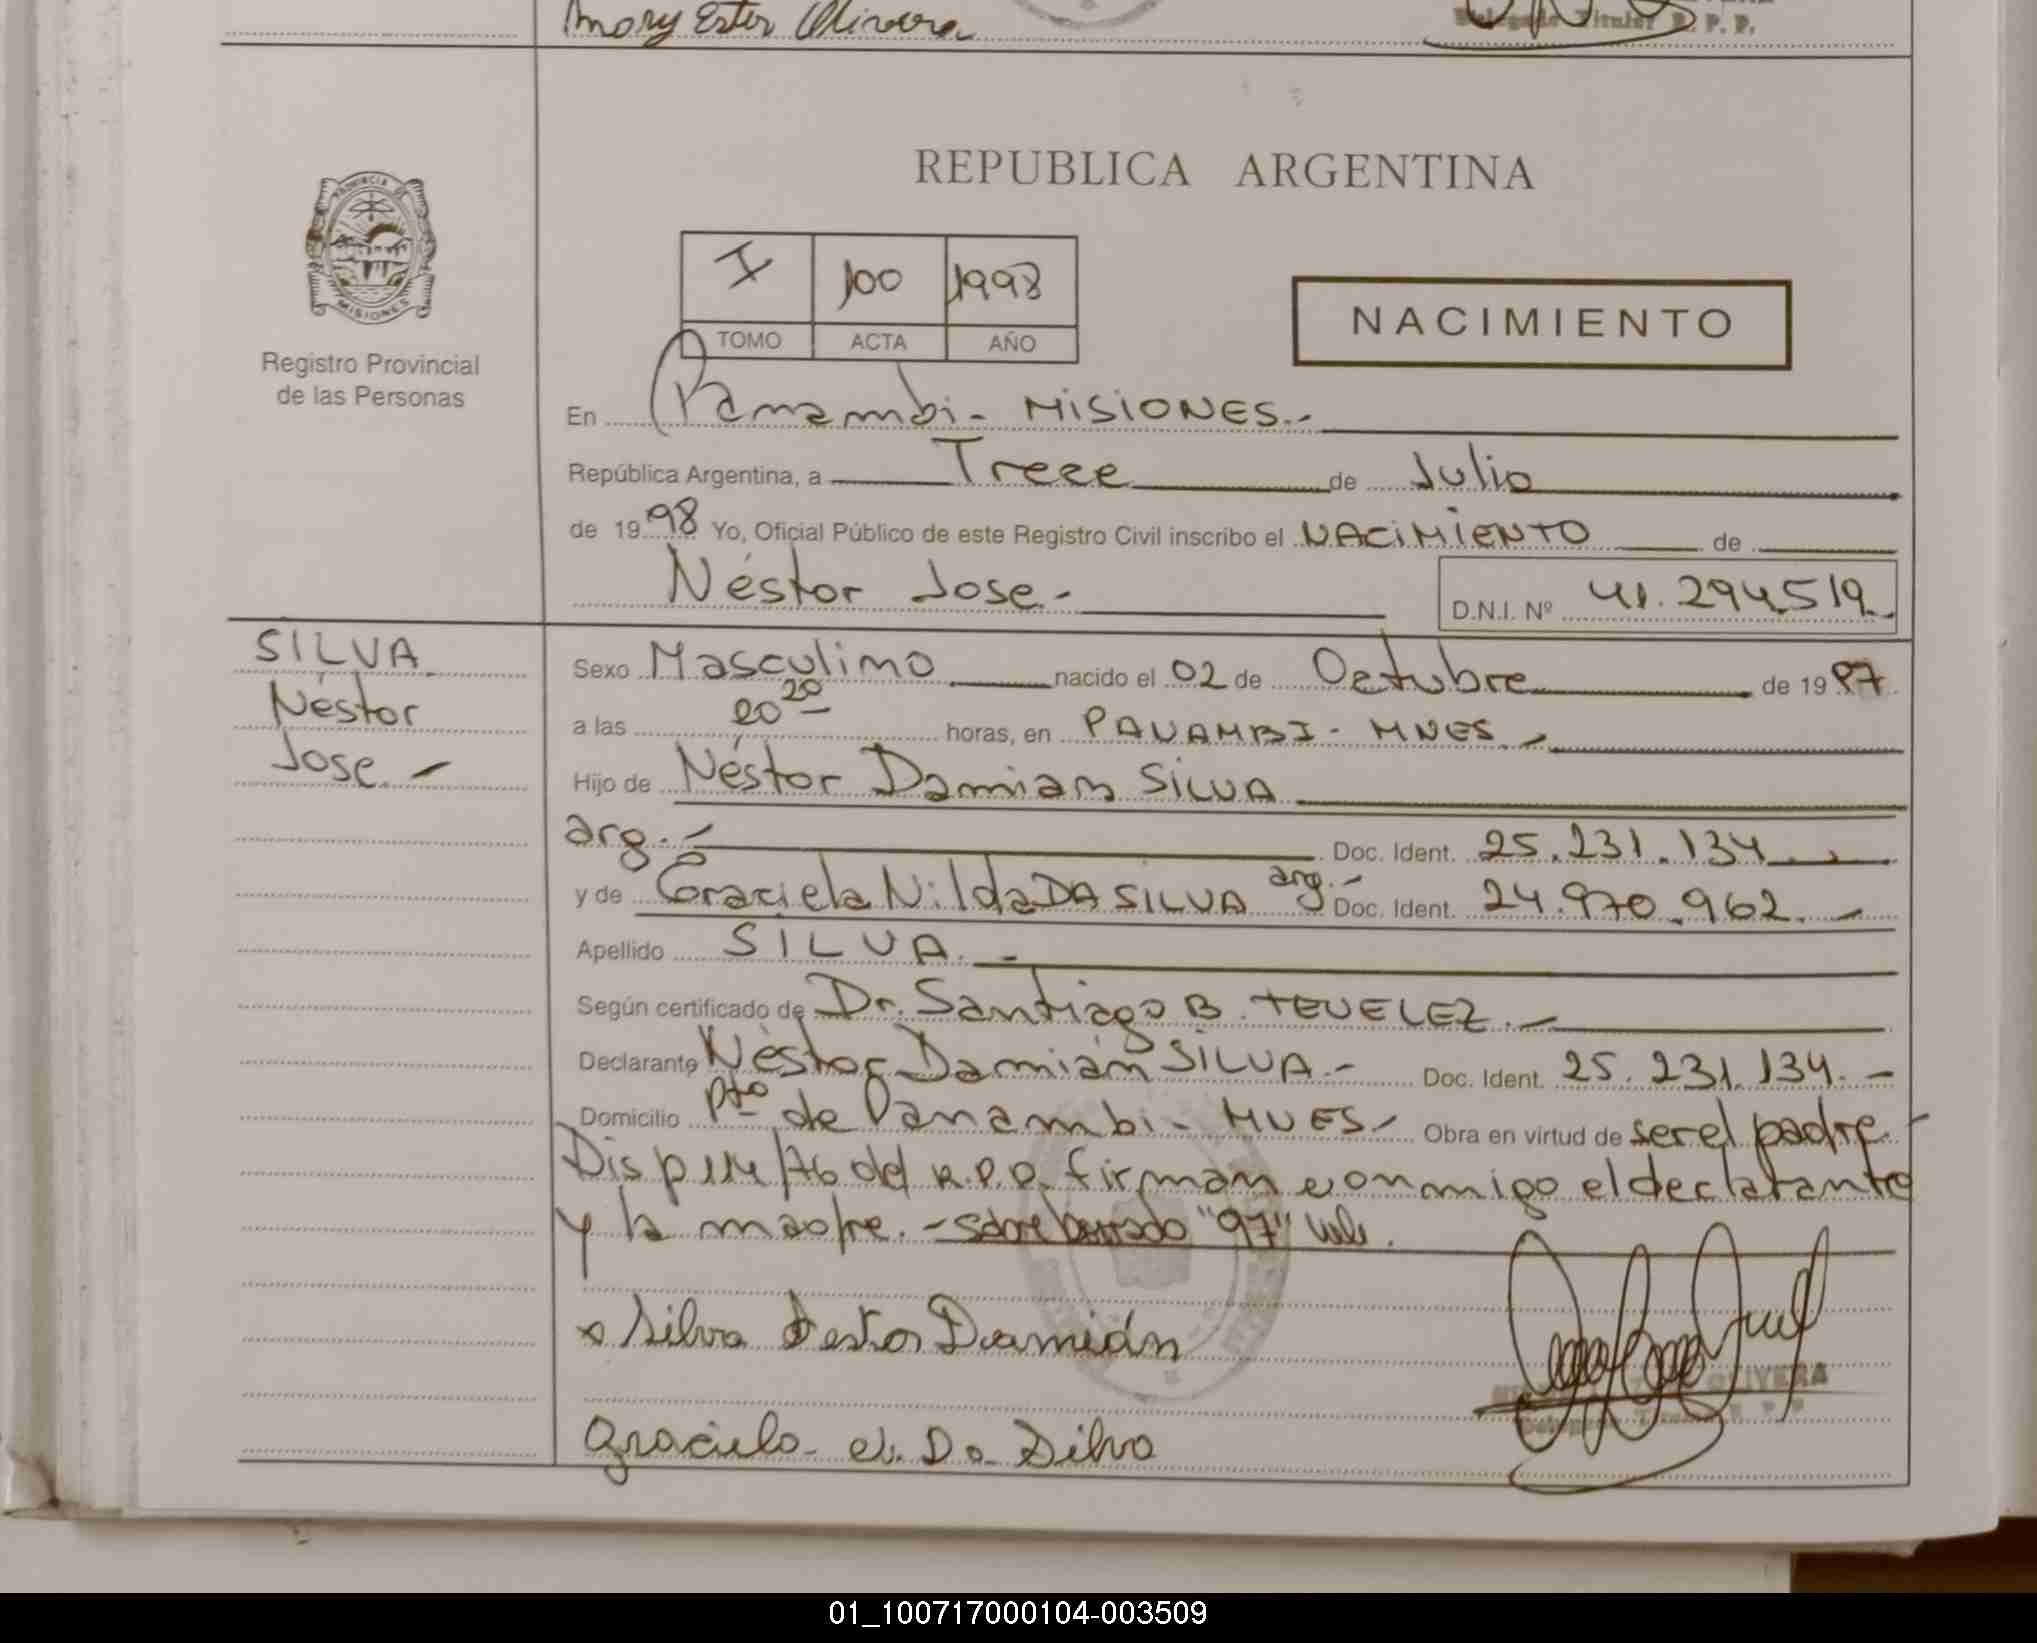 Mary Ester Olivera
Delegado Titular R. P. P.
PROVINCIA DE
MISIONES
Registro Provincial
de las Personas
REPUBLICA ARGENTINA
I 100 1998
TOMO ACTA AÑO
NACIMIENTO
En Panambi - MISIONES.-
República Argentina, a Trece de Julio
de 1998 Yo, Oficial Público de este Registro Civil inscribo el NACIMIENTO de
Néstor Jose.-
D.N.I. Nº 41.294.519
SILVA
Néstor
Jose.-
Sexo Masculino nacido el 02 de Octubre de 1997
a las 20 20 horas, en PANAMBI - MNES.-
Hijo de Néstor Damian SILVA
arg.- Doc. Ident. 25.231.134.-
y de Graciela Nilda DA SILVA arg.- Doc. Ident. 24.970.962.-
Apellido SILVA.-
Según certificado de Dr. Santiago B. TEVELEZ.-
Declarante Néstor Damián SILVA.- Doc. Ident. 25.231.134.-
Domicilio Pto de Panambi - MNES.- Obra en virtud de ser el padre.-
Disp 114/76 del R.P.P. firman conmigo el declarante
y la madre.- sobre borrado "97" vale.
x Silva Nestor Damián
OLIVERA
Delegado Titular R. P. P.
Graciela N. Da Silva
01_100717000104-003509